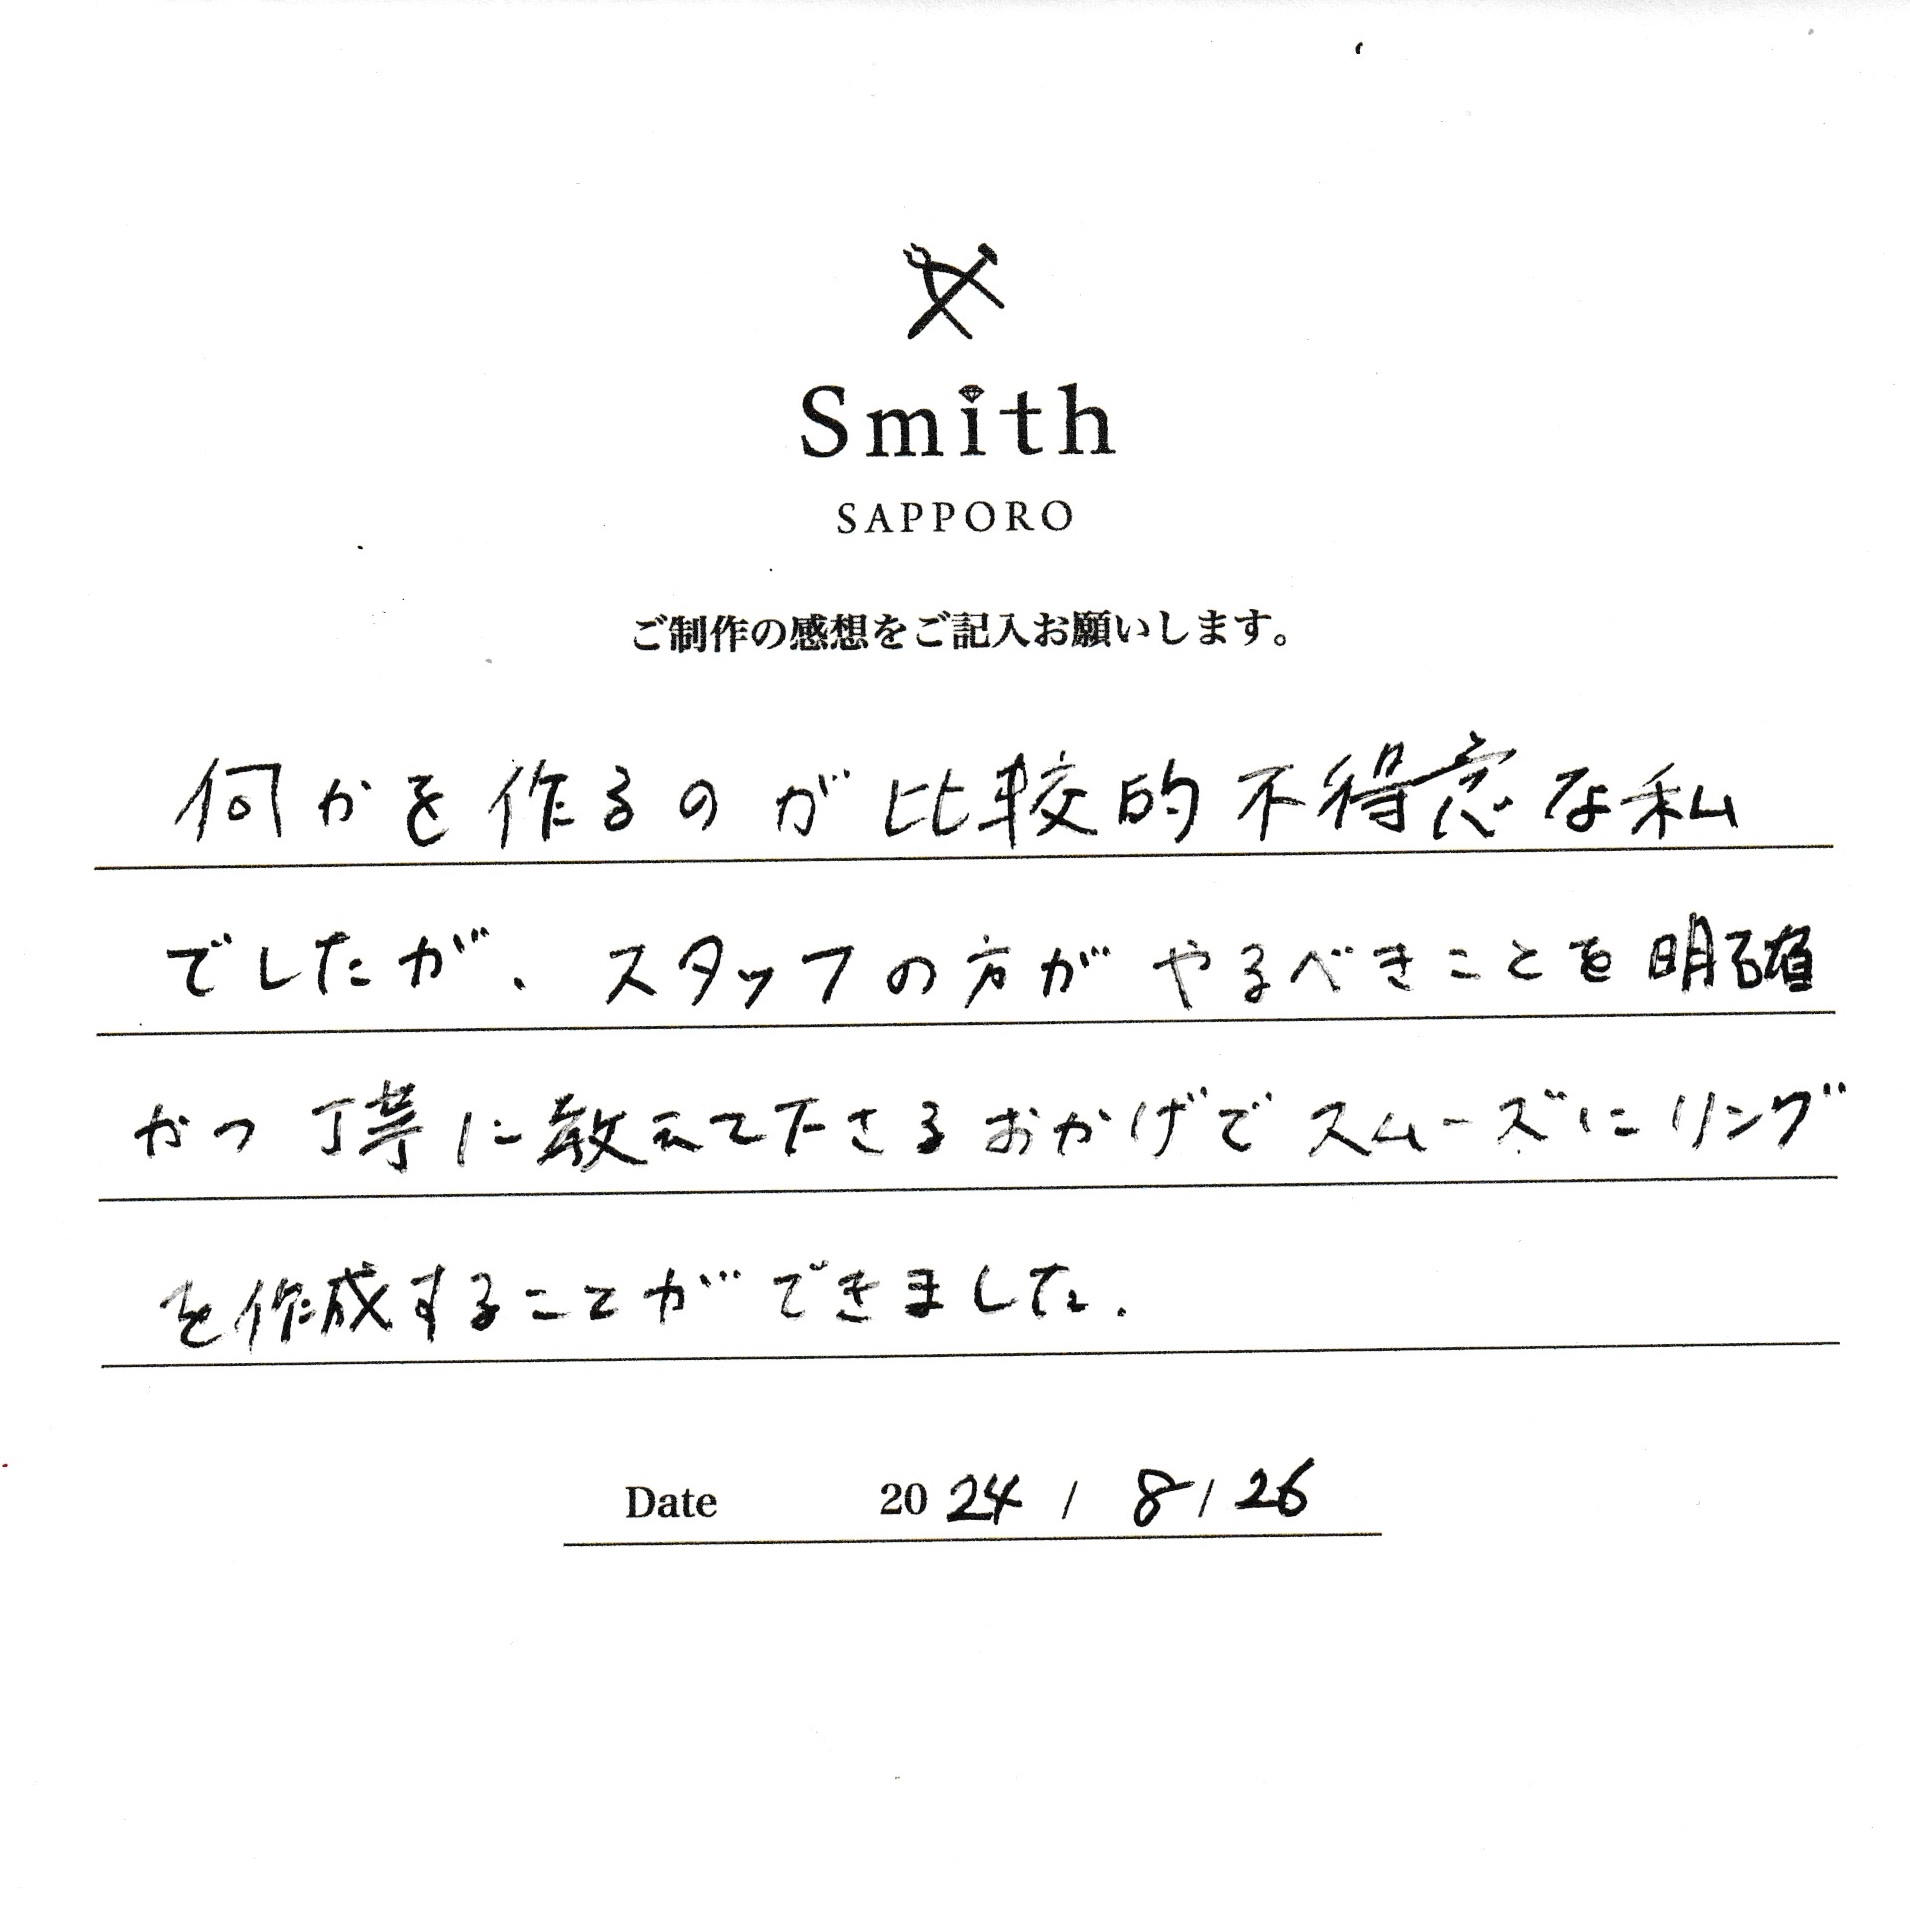 Smith
SAPPORO
ご制作の感想をご記入お願いします。
何かを作るのが比較的不得意な私
でしたが、スタッフの方がやるべきことを明確
かつ丁寧に教えて下さるおかげでスムーズにリング
を作成することができました.
Date 2024 / 8 / 26